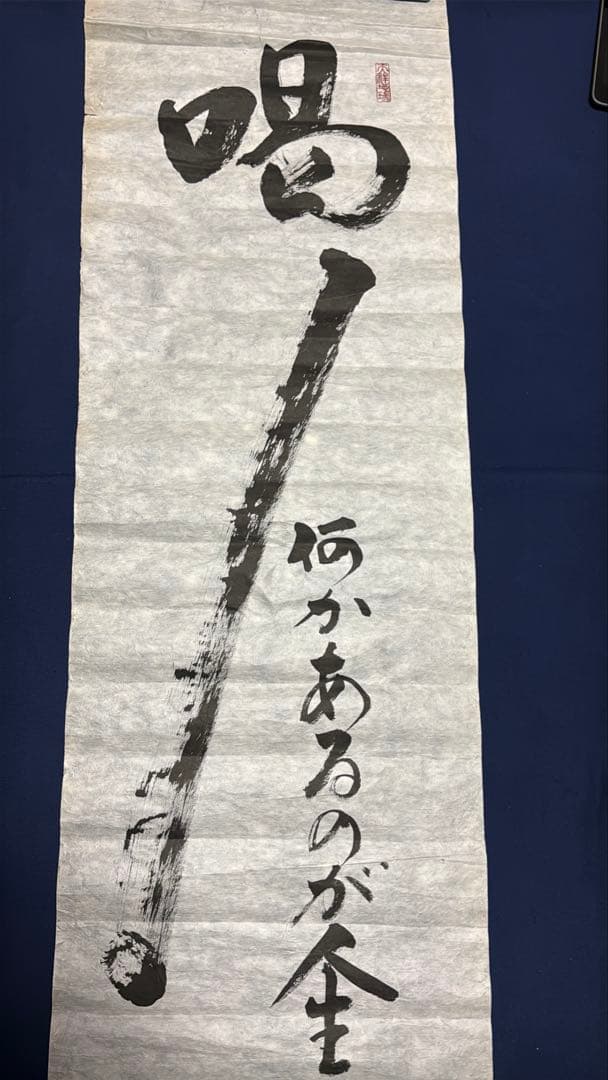 喝！
何かあるのが人生